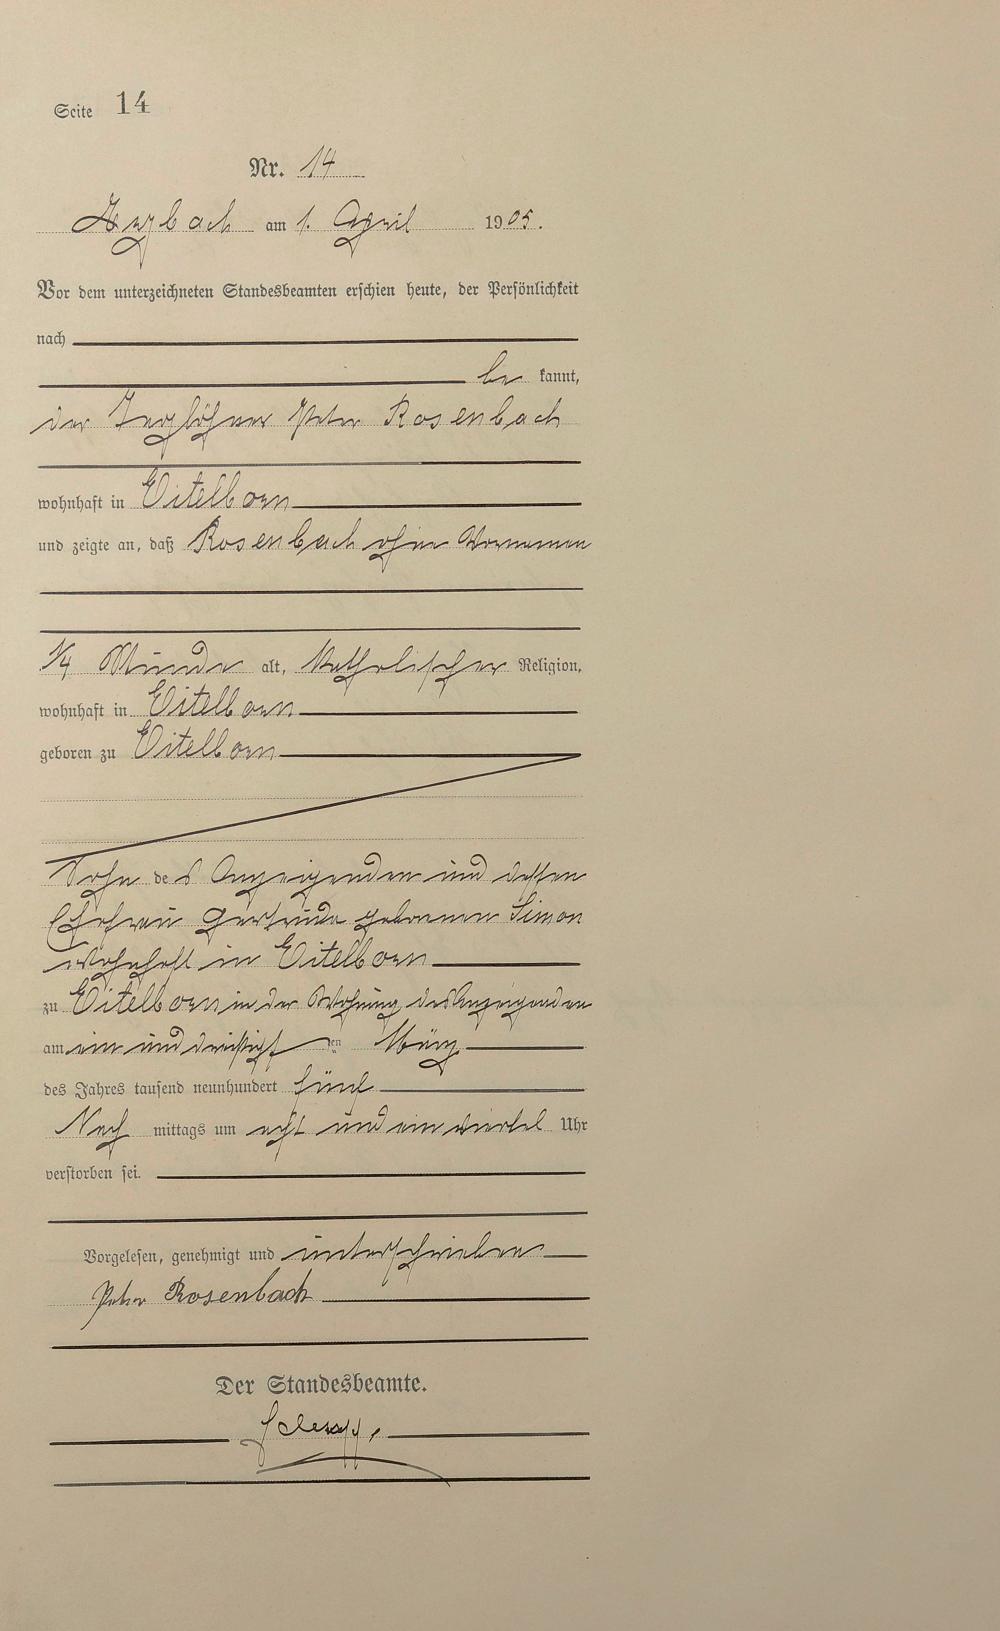 Seite 14
Nr. 14
Arzbach am 1. April 1905.
Vor dem unterzeichneten Standesbeamten erschien heute, der Persönlichkeit
nach
be kannt,
der Taglöhner Peter Rosenbach
wohnhaft in Eitelborn
und zeigte an, daß Rosenbach ohne Vornamen
1/4 Stunde alt, katholischer Religion,
wohnhaft in Eitelborn
geboren zu Eitelborn
Sohn des Anzeigenden und dessen
Ehefrau Gertrude geborenen Simon
wohnhaft in Eitelborn
zu Eitelborn in der Wohnung des Anzeigenden
am ein und dreißigsten März
des Jahres tausend neunhundert fünf
Nach mittags um acht und ein viertel Uhr
verstorben sei.
Vorgelesen, genehmigt und unterschrieben
Peter Rosenbach
Der Standesbeamte.